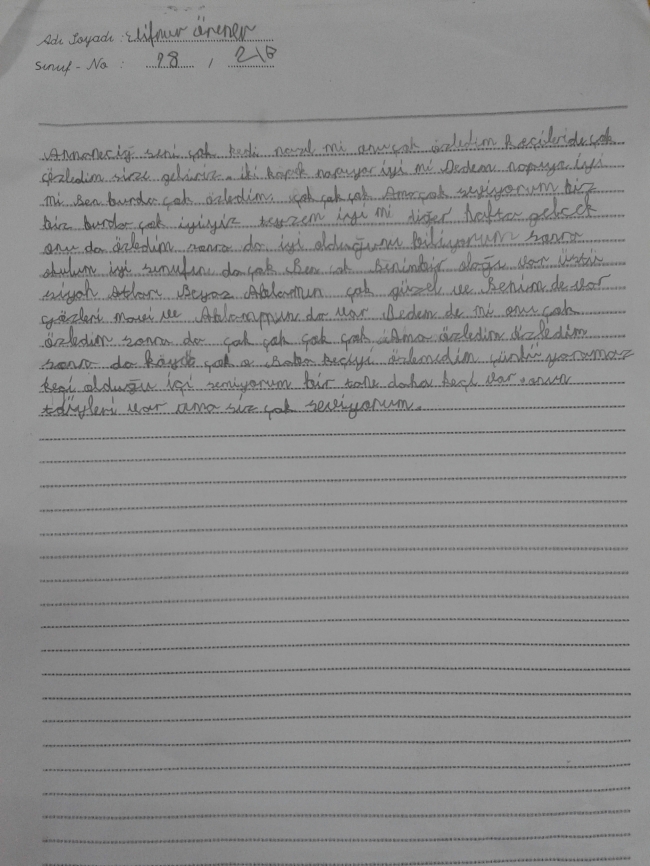 Adı Soyadı: Elifnur Önener
Sınıf - No: 98, 2\B
Annaneciğ seni çok kedi nasıl mi onu çok özledim Keçileride çok
özledim size geliriz. iki köpek napıyor iyi mi Dedem napıyo iyi
mi Ben burda çok özledim. çok çok çok Ama çok seviyorum biz
biz burda çok iyiyiz teyzem iyi mi diğer hafta gelcek
onu da özledim sonra da iyi olduğunu biliyorum sonra
okulum iyi sınıfın da çok Ben çok Benim bir var üstü
siyah Atları Beyaz Ablamın çok güzel ve Benim de var
gözleri mavi ve da var Dedem de mi onu çok
özledim sonra da çok çok çok çok Ama özledim özledim
sonra da çok o Baba keçiyi özlemedim çünkü yaramaz
keçi olduğu içi seniyorum bir tane daha keçi var. onun
tüyleri var ama siz çok seviyorum.